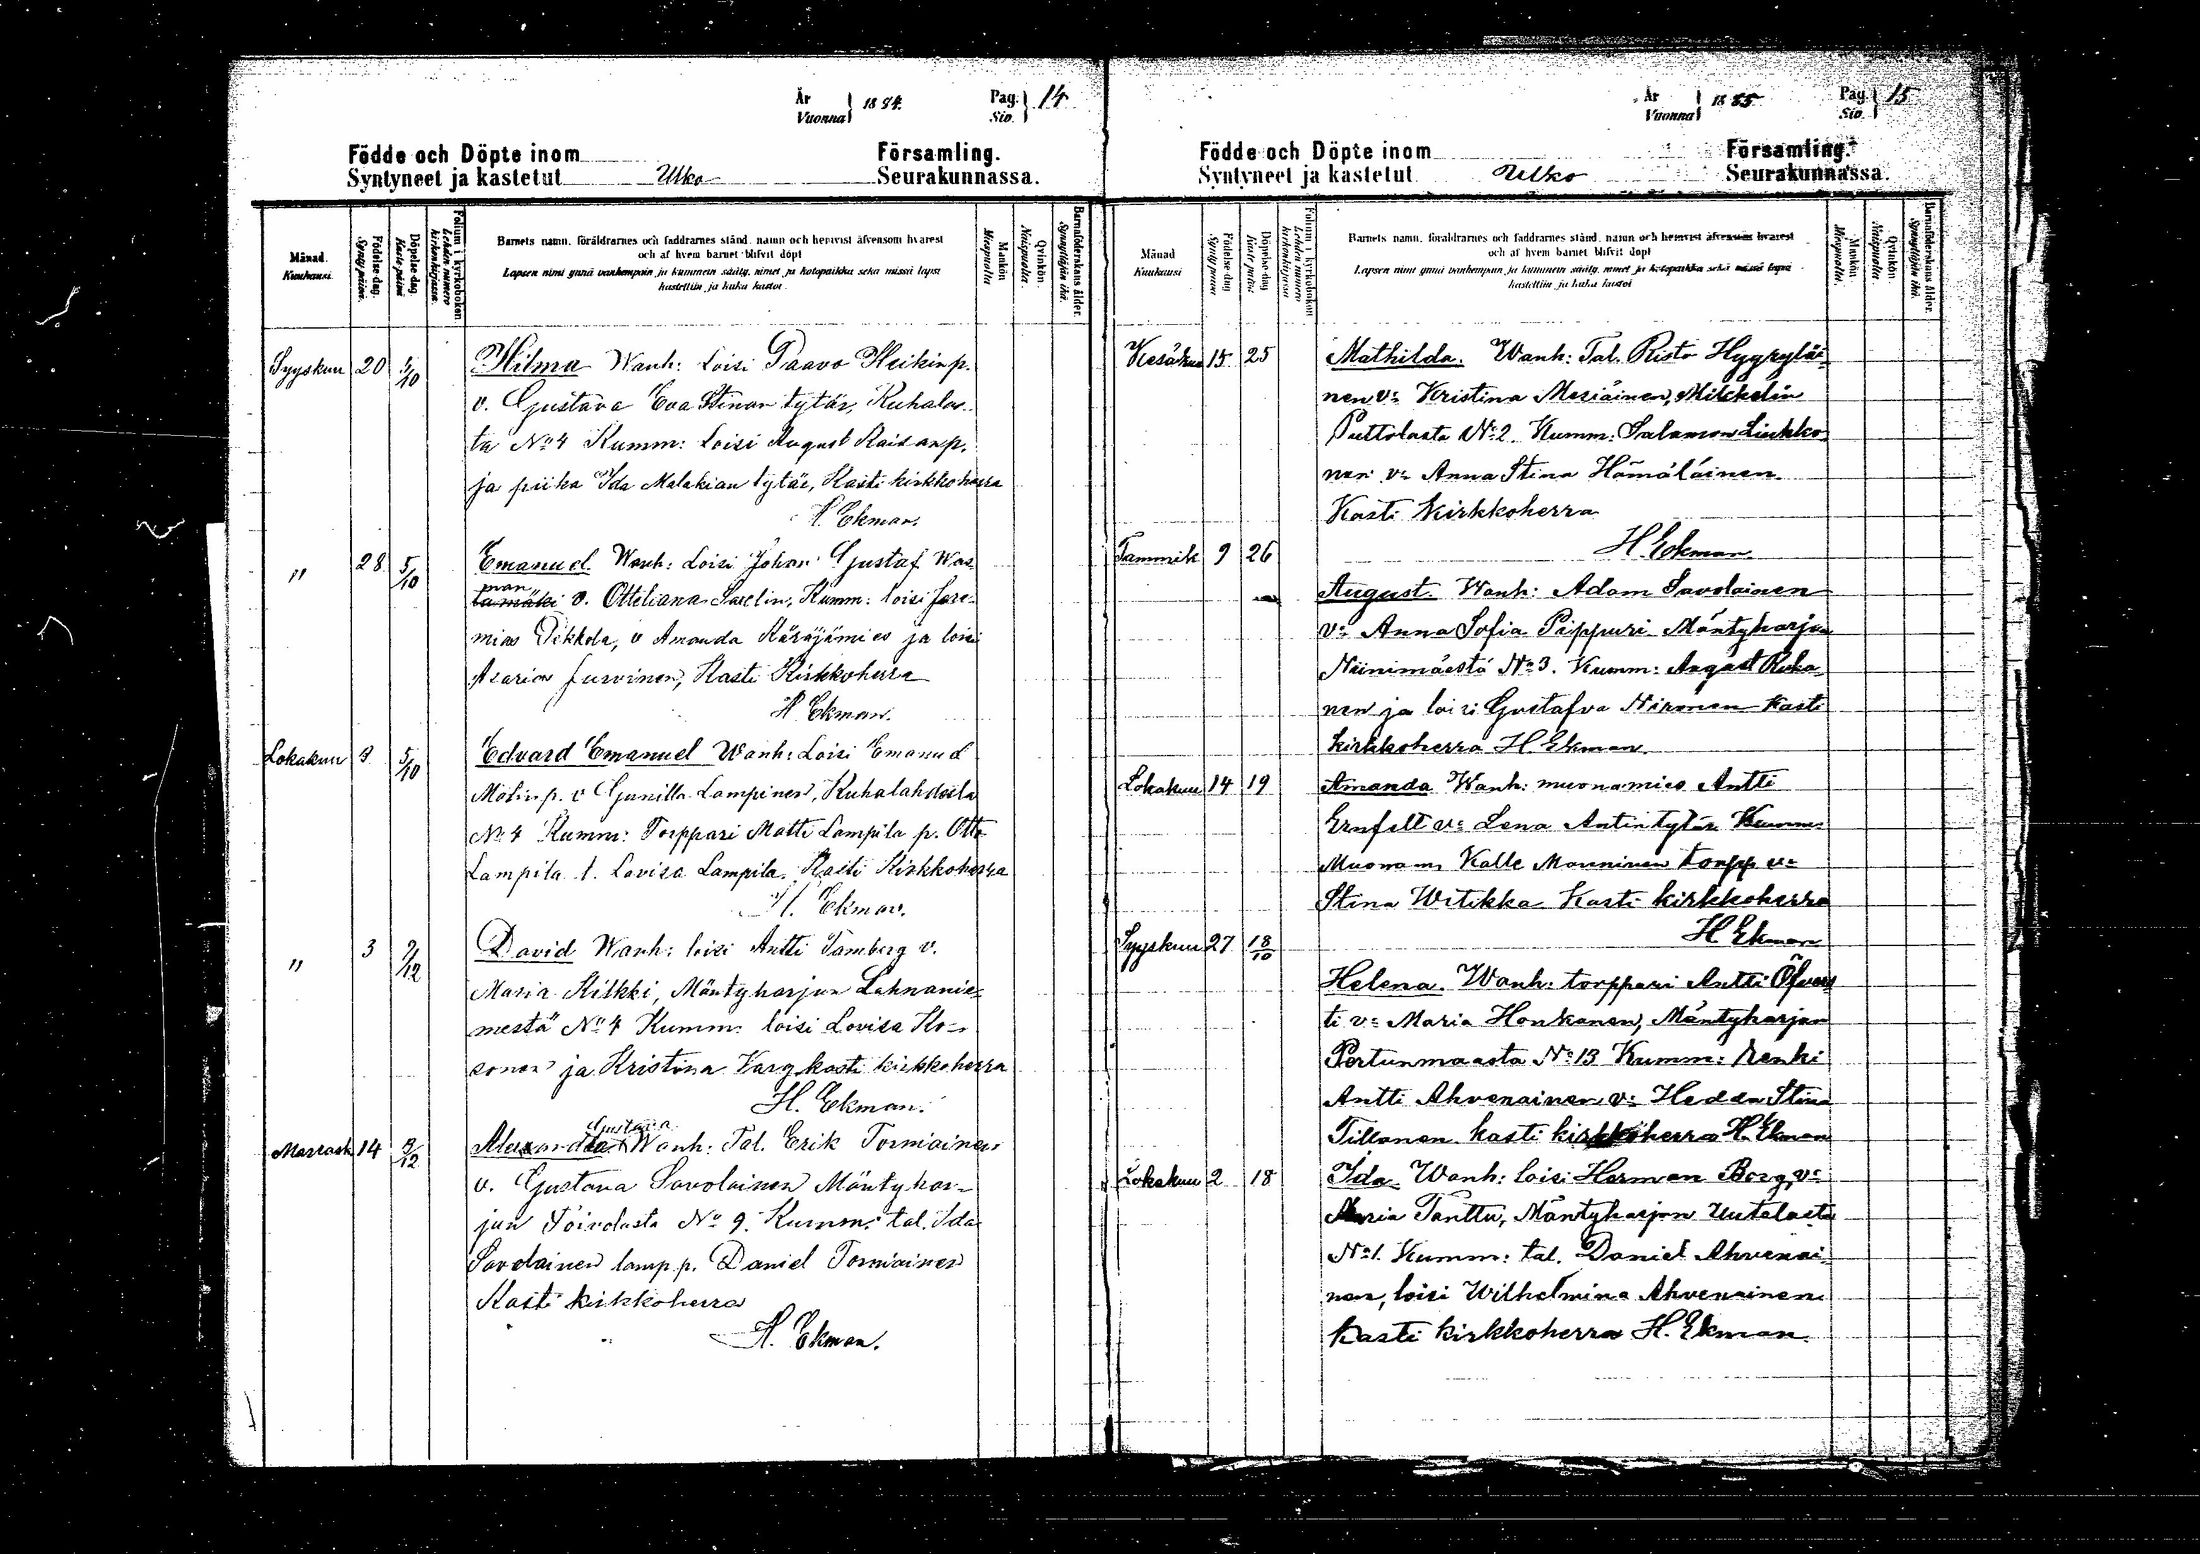 År
Vuonna
1884.
Pag.
Siv.
14
Födde och Döpte inom Församling.
Syntyneet ja kastetut Ulko Seurakunnassa.
Månad.
Kuukausi.
Födelse-dag.
Syntypäivä.
Döpelse-dag.
Kaste-päivä
Folium i kyrkoboken
Lehden numero kirkonkirjassa.
Barnets namn, föräldrarnes och faddrarnes stånd, namn och hemvist äfvensom hvarest
och af hvem barnet blifvit döpt
Lapsen nimi ynnä vanhempain ja kummein sääty, nimet ja kotopaikka sekä missä lapsi
kastettiin ja kuka kastoi.
Mankön
Miespuolia
Qvinkön.
Naispuolia.
Barnaföderskans ålder.
Synnyttäjän ikä.
Syyskuu 20 5/10 Hilma Wanh: Loisi Paavo Heikinp.
v. Gustava Eva Stinan tytär, Kuhalas-
ta No 4 Kumm: Loisi August Kaisanp.
ja piika Ida Malakian tytär, Kasti kirkkoherra
H. Ekman.
" 28 5/10 Emanuel. Wanh: Loisi Johan Gustaf Was-
man
tamäki v. Otteliana Sarelin, Kumm: loisi Jere-
mias Pekkola, v Amanda Käräjämies ja loisi
Asarias Jurvinen, Kasti Kirkkoherra
H Ekman.
Lokakuu 3 5/10 Edvard Emanuel Wanh: Loisi Emanuel
Molinp. v Gunilla Lampinen, Kuhalahdesta
No 4 Kumm: Torppari Matti Lampila p. Otto
Lampila t. Lovisa Lampila. Kasti Kirkkoherra
H. Ekman.
" 3 9/12 David Wanh: loisi Antti Tamberg v.
Maria Kilkki, Mäntyharjun Lahnanie-
mestä No 4 Kumm: loisi Lovisa Ko-
sonen ja Kristina Varg kasti kirkkoherra
H. Ekman.
Gustava
Marrask 14 9/12 Alexandra Wanh: Tal. Erik Torniainen
v. Gustava Savolainen Mäntyhar-
jun Toivolasta No 9. Kumm: tal. Ida
Savolainen lamp.p. Daniel Torniainen
Kasti kirkkoherra
H. Ekman.
År
Vuonna
1885
Pag.
Siv.
15
Födde och Döpte inom Församling.
Syntyneet ja kastetut Ulko Seurakunnassa.
Månad
Kuukausi
Födelse-dag
Syntypäivä
Döpelse-dag
Kaste-päivä
Folium i kyrkoboken
Lehden numero kirkonkirjassa
Barnets namn, föräldrarnes och faddrarnes stånd, namn och hemvist äfvensom hvarest
och af hvem barnet blifvit döpt
Lapsen nimi ynnä vanhempain ja kummein sääty, nimet ja kotopaikka sekä missä lapsi
kastettiin ja kuka kastoi
Mankön
Miespuolia.
Qvinkön
Naispuolia
Barnaföderskans ålder.
Synnyttäjän ikä.
Kesäkuu 15 25 Mathilda. Wanh: Tal. Risto Hyyryläi-
nen v: Kristina Mesiäinen, Mikkelin
Puttolasta No 2. Kumm: Salamon Liukko-
nen v: Anna Stina Hämäläinen
Kasti Kirkkoherra
H. Ekman.
Tammik 9 26
August. Wanh: Adam Savolainen
v: Anna Sofia Pippuri Mäntyharjun
Niinimäestä No 3. Kumm: August Reka-
nen ja loisi Gustafva Niranen Kasti
kirkkoherra H. Ekman.
Lokakuu 14 19 Amanda Wanh: muonamies Antti
Ernfelt v: Lena Antintytär Kumm:
Muonam. Kalle Manninen torpp v:
Stina Witikka Kasti kirkkoherra
H Ekman
Syyskuu 27 18/10
Helena. Wanh: torppari Antti Öfvers-
ti v: Maria Honkanen, Mäntyharjun
Pertunmaasta No 13 Kumm: Renki
Antti Ahvenainen v: Hedda Stina
Tillanen kasti kirkkoherra H. Ekman
Lokakuu 2 18 Ida Wanh: loisi Herman Borg, v:
Maria Tanttu, Mäntyharjun Uutelasta
No 1. Kumm: tal. Daniel Ahvenai-
nen, loisi Wilhelmina Ahvenainen
Kasti kirkkoherra H. Ekman.